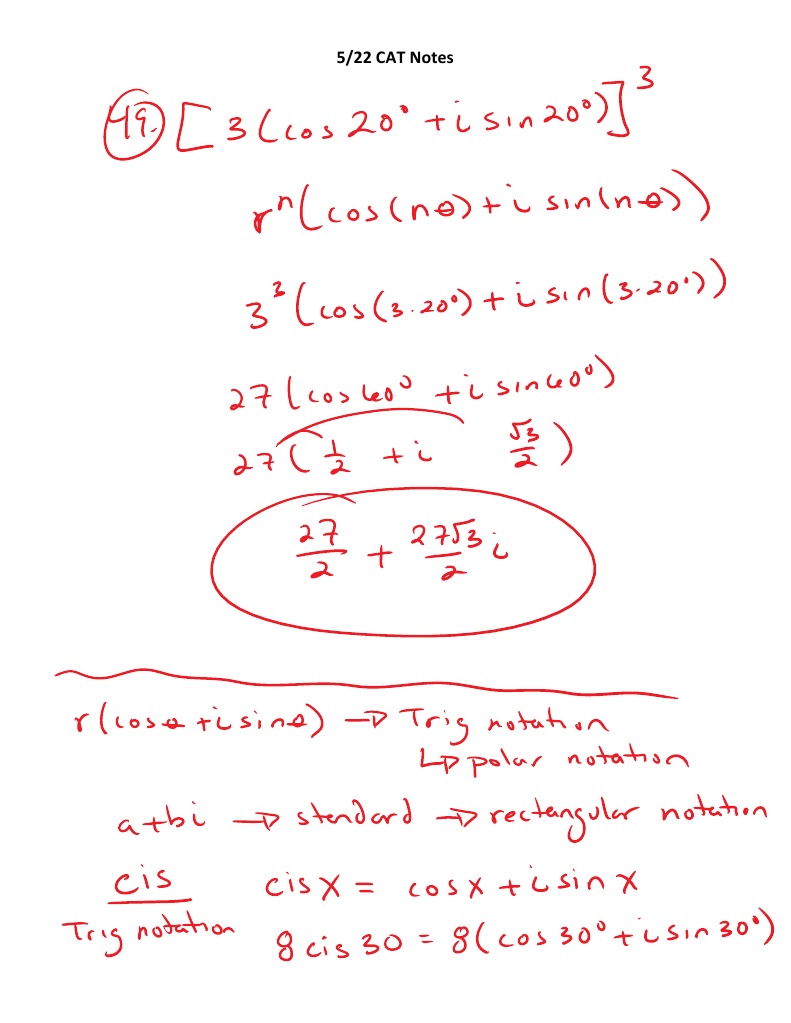 5/22 CAT Notes
49. [3(cos 20° + i sin 20°)]³
rⁿ(cos(nθ) + i sin(nθ))
3³(cos(3·20°) + i sin(3·20°))
27(cos 60° + i sin 60°)
27(1/2 + i √3/2)
27/2 + 27√3/2 i
r(cosθ + i sinθ) → Trig notation
↳ polar notation
a+bi → standard → rectangular notation
cis cis x = cos x + i sin x
Trig notation 8 cis 30 = 8(cos 30° + i sin 30°)